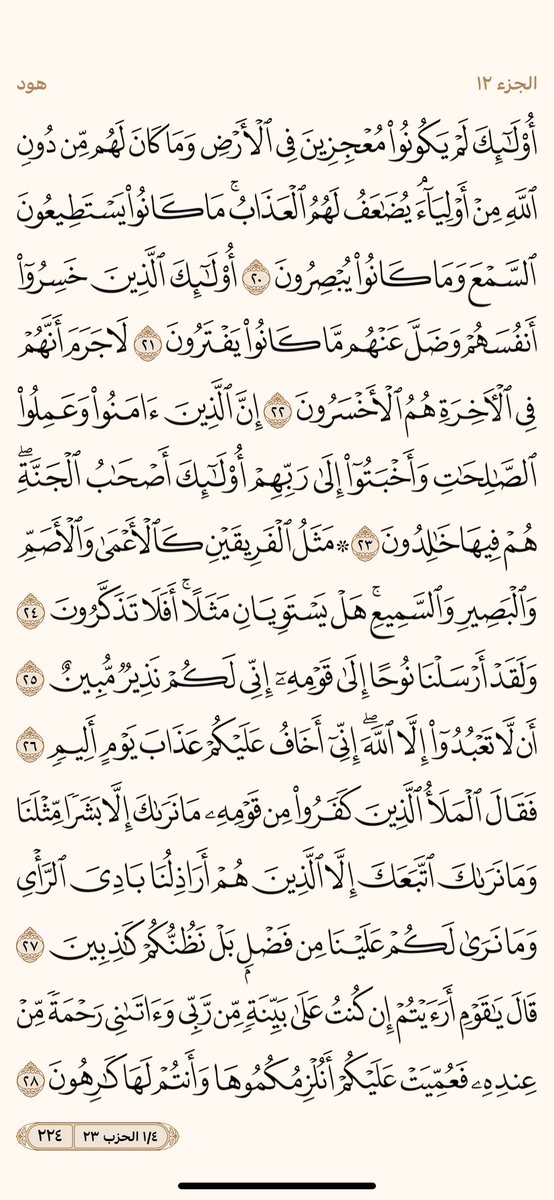 الجزء ١٢
هود
أُوْلَٰٓئِكَ لَمۡ يَكُونُواْ مُعۡجِزِينَ فِي ٱلۡأَرۡضِ وَمَا كَانَ لَهُم مِّن دُونِ
ٱللَّهِ مِنۡ أَوۡلِيَآءَۘ يُضَٰعَفُ لَهُمُ ٱلۡعَذَابُۚ مَا كَانُواْ يَسۡتَطِيعُونَ
ٱلسَّمۡعَ وَمَا كَانُواْ يُبۡصِرُونَ ٢٠ أُوْلَٰٓئِكَ ٱلَّذِينَ خَسِرُوٓاْ
أَنفُسَهُمۡ وَضَلَّ عَنۡهُم مَّا كَانُواْ يَفۡتَرُونَ ٢١ لَا جَرَمَ أَنَّهُمۡ
فِي ٱلۡأٓخِرَةِ هُمُ ٱلۡأَخۡسَرُونَ ٢٢ إِنَّ ٱلَّذِينَ ءَامَنُواْ وَعَمِلُواْ
ٱلصَّٰلِحَٰتِ وَأَخۡبَتُوٓاْ إِلَىٰ رَبِّهِمۡ أُوْلَٰٓئِكَ أَصۡحَٰبُ ٱلۡجَنَّةِۖ
هُمۡ فِيهَا خَٰلِدُونَ ٢٣ ۞ مَثَلُ ٱلۡفَرِيقَيۡنِ كَٱلۡأَعۡمَىٰ وَٱلۡأَصَمِّ
وَٱلۡبَصِيرِ وَٱلسَّمِيعِۚ هَلۡ يَسۡتَوِيَانِ مَثَلًاۚ أَفَلَا تَذَكَّرُونَ ٢٤
وَلَقَدۡ أَرۡسَلۡنَا نُوحًا إِلَىٰ قَوۡمِهِۦٓ إِنِّي لَكُمۡ نَذِيرٞ مُّبِينٌ ٢٥
أَن لَّا تَعۡبُدُوٓاْ إِلَّا ٱللَّهَۖ إِنِّيٓ أَخَافُ عَلَيۡكُمۡ عَذَابَ يَوۡمٍ أَلِيمٖ ٢٦
فَقَالَ ٱلۡمَلَأُ ٱلَّذِينَ كَفَرُواْ مِن قَوۡمِهِۦ مَا نَرَىٰكَ إِلَّا بَشَرٗا مِّثۡلَنَا
وَمَا نَرَىٰكَ ٱتَّبَعَكَ إِلَّا ٱلَّذِينَ هُمۡ أَرَاذِلُنَا بَادِيَ ٱلرَّأۡيِ
وَمَا نَرَىٰ لَكُمۡ عَلَيۡنَا مِن فَضۡلِۭ بَلۡ نَظُنُّكُمۡ كَٰذِبِينَ ٢٧
قَالَ يَٰقَوۡمِ أَرَءَيۡتُمۡ إِن كُنتُ عَلَىٰ بَيِّنَةٖ مِّن رَّبِّي وَءَاتَىٰنِي رَحۡمَةٗ مِّنۡ
عِندِهِۦ فَعُمِّيَتۡ عَلَيۡكُمۡ أَنُلۡزِمُكُمُوهَا وَأَنتُمۡ لَهَا كَٰرِهُونَ ٢٨
١/٤ الحزب ٢٣
٢٢٤